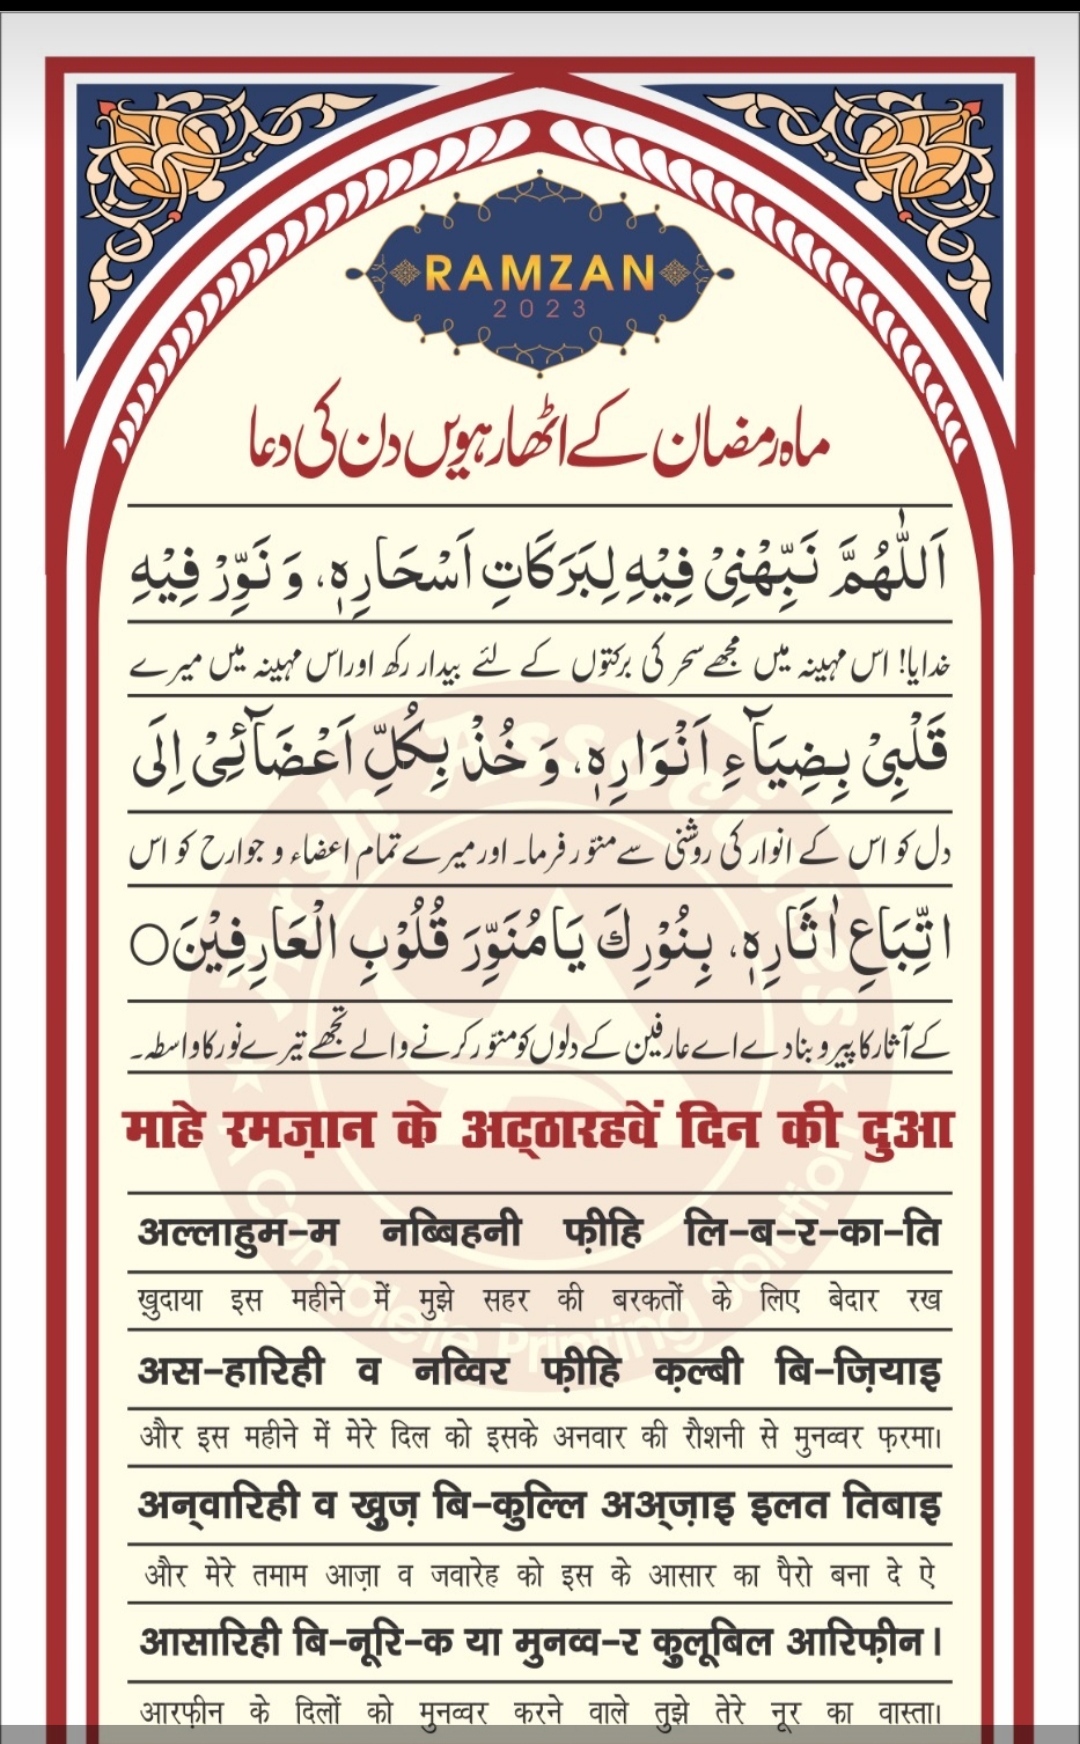 RAMZAN
2023
ماہ رمضان کے اٹھارہویں دن کی دعا
اَللّٰهُمَّ نَبِّهْنِیْ فِیْهِ لِبَرَكَاتِ اَسْحَارِهٖ، وَ نَوِّرْ فِیْهِ
خدایا! اس مہینہ میں مجھے سحر کی برکتوں کے لئے بیدار رکھ اور اس مہینہ میں میرے
قَلْبِیْ بِضِیَآءِ اَنْوَارِهٖ، وَ خُذْ بِكُلِّ اَعْضَآئِیْ اِلَی
دل کو اس کے انوار کی روشنی سے منوّر فرما۔ اور میرے تمام اعضاء و جوارح کو اس
اتِّبَاعِ اٰثَارِهٖ، بِنُوْرِكَ یَا مُنَوِّرَ قُلُوْبِ الْعَارِفِیْنَ○
کے آثار کا پیرو بنا دے اے عارفین کے دلوں کو منوّر کرنے والے تجھے تیرے نور کا واسطہ۔
माहे रमज़ान के अट्ठारहवें दिन की दुआ
अल्लाहुम-म नब्बिहनी फ़ीहि लि-ब-र-का-ति
ख़ुदाया इस महीने में मुझे सहर की बरकतों के लिए बेदार रख
अस-हारिही व नव्विर फ़ीहि क़ल्बी बि-ज़ियाइ
और इस महीने में मेरे दिल को इसके अनवार की रौशनी से मुनव्वर फ़रमा।
अन्वारिही व ख़ुज़ बि-कुल्लि अअ्ज़ाइ इलत तिबाइ
और मेरे तमाम आज़ा व जवारेह को इस के आसार का पैरो बना दे ऐ
आसारिही बि-नूरि-क या मुनव्व-र क़ुलूबिल आरिफ़ीन।
आरफ़ीन के दिलों को मुनव्वर करने वाले तुझे तेरे नूर का वास्ता।
Arsh Associates
A Complete Printing Solution